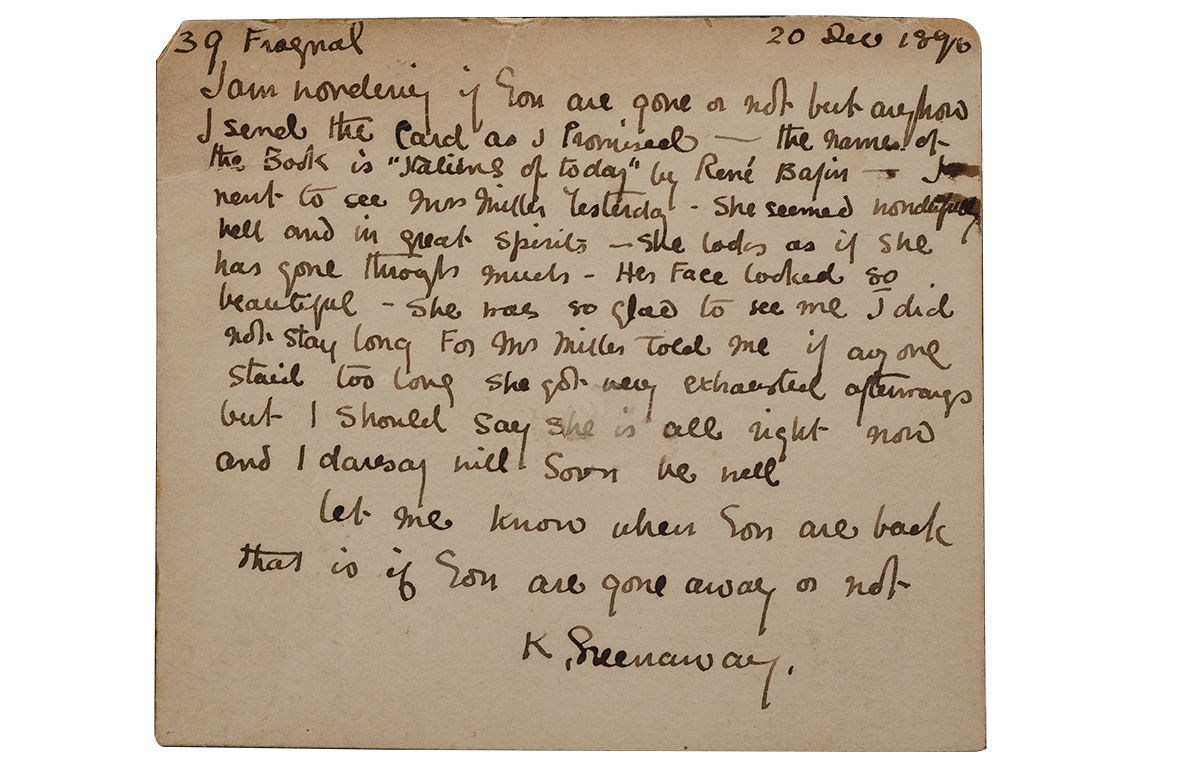 39 Frognal 20 Dec 1896
I am wondering if You are gone or not but anyhow
I send the Card as I Promised — the name of
the Book is "Italians of today" by René Bazin — I
went to see Mrs Miller Yesterday - She seemed wonderfully
well and in great spirits — She looks as if She
has gone through much - Her Face looked so
beautiful - She was so glad to see me I did
not stay long For Mrs Miller Told me if any one
staid too long she got very exhausted afterwards
but I should say she is all right now
and I daresay will Soon be well
let me know when You are back
that is if You are gone away or not
K. Greenaway.